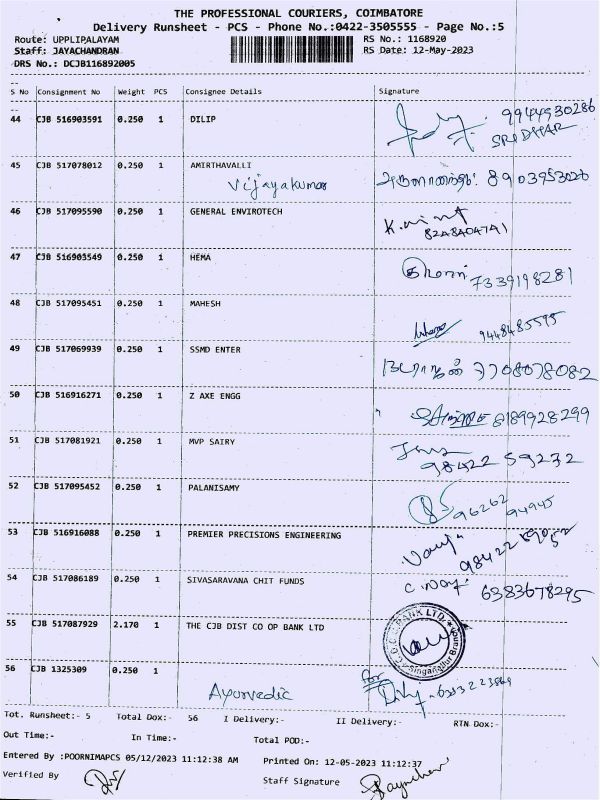 THE PROFESSIONAL COURIERS, COIMBATORE
Delivery Runsheet - PCS - Phone No.:0422-3505555 - Page No.:5
Route: UPPLIPALAYAM RS No.: 1168920
Staff: JAYACHANDRAN RS Date: 12-May-2023
DRS No.: DCJB116892005
S No Consignment No Weight PCS Consignee Details Signature
44 CJB 516903591 0.250 1 DILIP 9944930286
SRIDHAR
45 CJB 517078012 0.250 1 AMIRTHAVALLI
Vijayakumar 8903953026
46 CJB 517095590 0.250 1 GENERAL ENVIROTECH
47 CJB 516903549 0.250 1 HEMA
7339198281
48 CJB 517095451 0.250 1 MAHESH
9448485595
49 CJB 517069939 0.250 1 SSMD ENTER
7708078082
50 CJB 516916271 0.250 1 Z AXE ENGG
8189928299
51 CJB 517081921 0.250 1 MVP SAIRY
98422 59232
52 CJB 517095452 0.250 1 PALANISAMY
96262 94945
53 CJB 516916088 0.250 1 PREMIER PRECISIONS ENGINEERING
54 CJB 517086189 0.250 1 SIVASARAVANA CHIT FUNDS
6383678295
55 CJB 517087929 2.170 1 THE CJB DIST CO OP BANK LTD
BANK LTD. Singanallur Branch
56 CJB 1325309 0.250 1
Ayurvedic for
Tot. Runsheet:- 5 Total Dox:- 56 I Delivery:- II Delivery:- RTN Dox:-
Out Time:- In Time:- Total POD:-
Entered By :POORNIMAPCS 05/12/2023 11:12:38 AM Printed On: 12-05-2023 11:12:37
Verified By Staff Signature